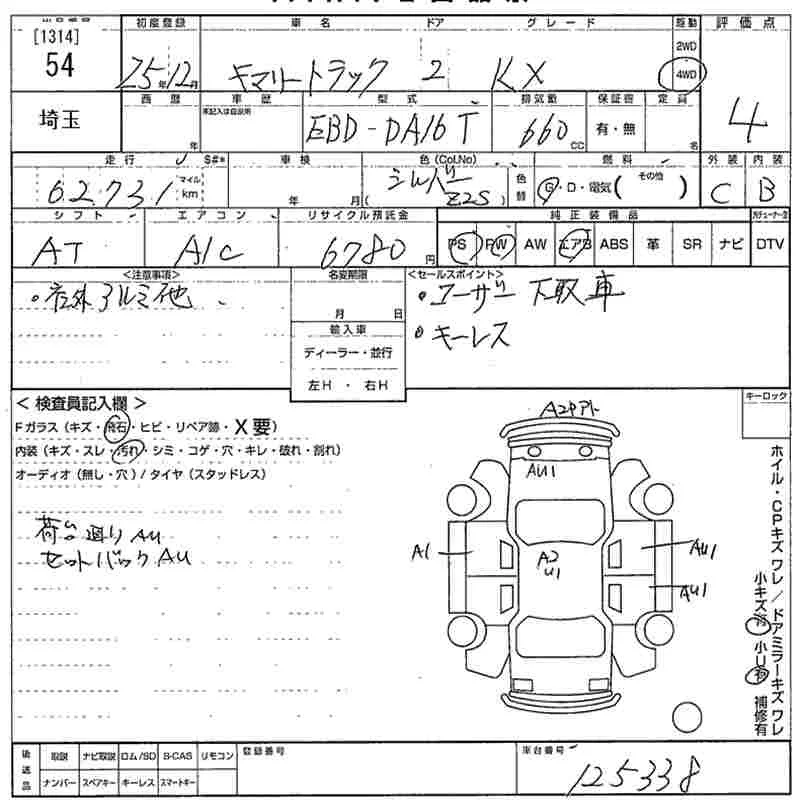 [1314]
54
埼玉
初度登録 車名 ドア グレード 駆動 評価点
25年12月 キャリートラック 2 KX 2WD 4WD
4
西暦 車歴 型式 排気量 保証書 定員
年 ※記入は自動的 EBD-DA16T 660cc 有・無 名
走行 S#* 車検 色(Col.No) 燃料 外装 内装
62731 マイル km 年 月 シルバー Z2S 色替 G・D・電気( その他 ) C B
シフト エアコン リサイクル預託金 純正装備品
AT A/C 6780円 PS PW AW エアB ABS 革 SR ナビ DTV
<注意事項> 名変期限 <セールスポイント>
・社外アルミ他
月 日
・ユーザー下取車
・キーレス
輸入車
ディーラー・並行
左H・右H
< 検査員記入欄 >
Fガラス(キズ・飛石・ヒビ・リペア跡・X要)
内装(キズ・スレ・汚れ・シミ・コゲ・穴・キレ・破れ・割れ)
オーディオ(無し・穴)/タイヤ(スタッドレス)
荷台廻りAU
セットバックAU
A2Pアト
AU1
A1
A2
U1
AU1
AU1
キーロック
ホイル・CPキズ ワレ/ドアミラーキズ ワレ
小キズ有 小U有 補修有
後送品 取説 ナビ取説 ロム/SD B-CAS リモコン
ナンバー スペアキー キーレス スマートキー
登録番号 車台番号
125338